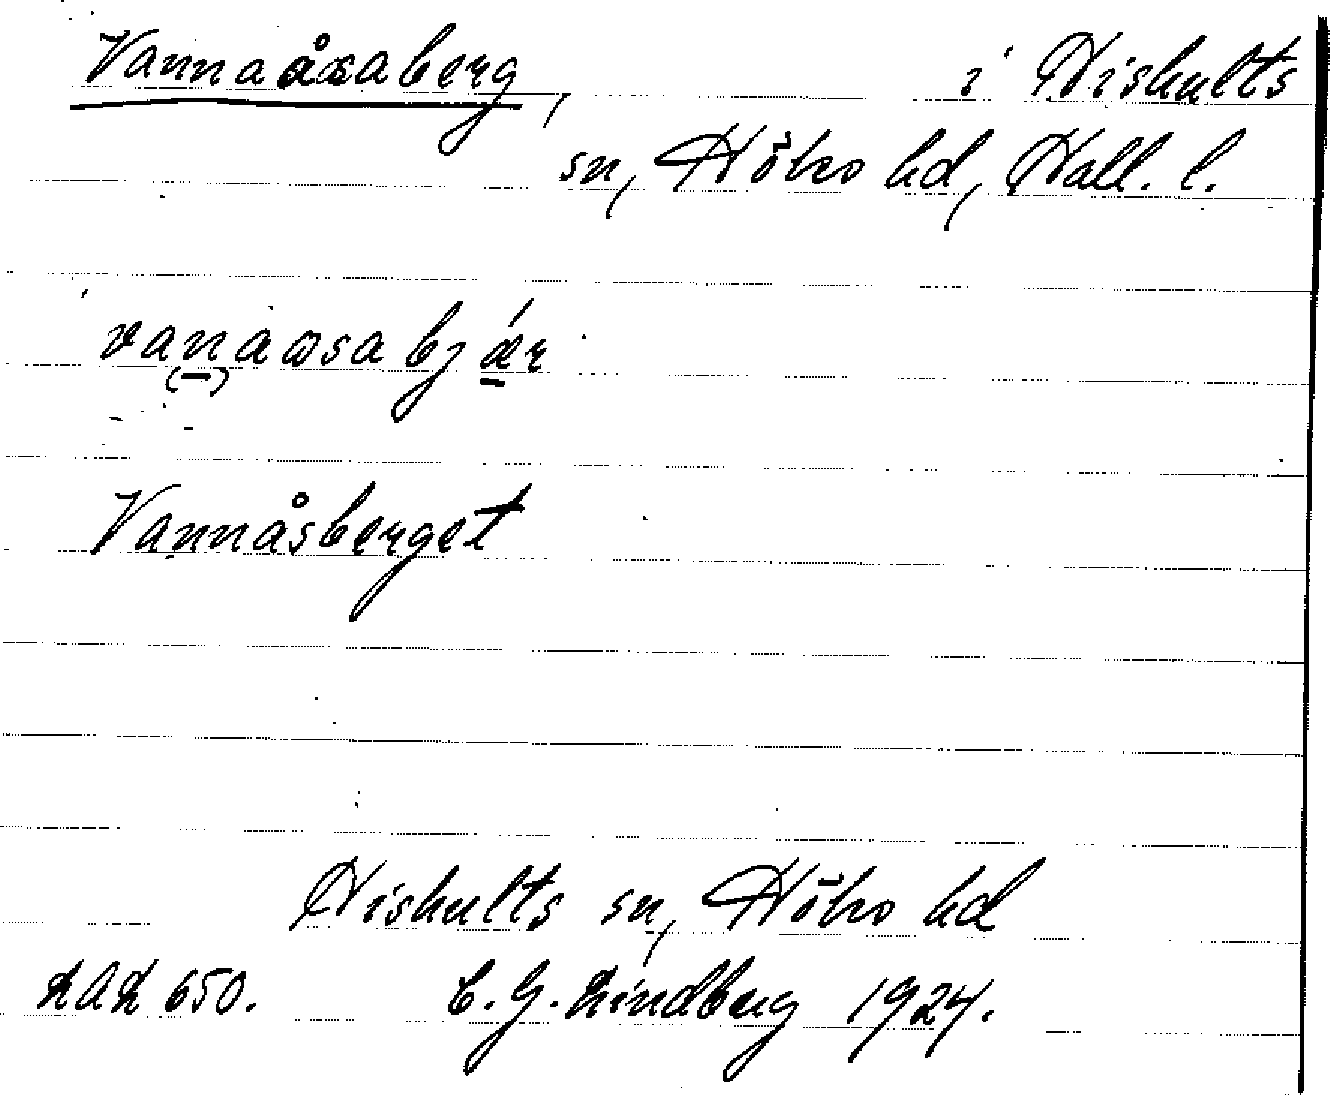 Vannaåsaberg, i Nishults
sn, Höks hd, Hall. l.
vanaωsabjǽr
Vannåsberget
Nishults sn, Höks hd
LAL 650. C. G. Lindberg 1924.